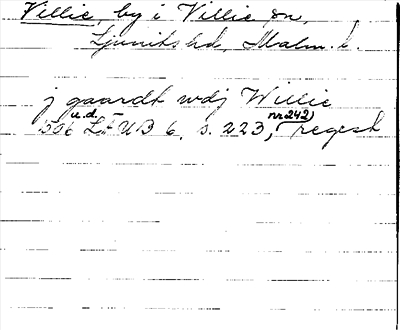 Villie, by i Villie sn,
Ljunits hd, Malm. l.
j gaardt wdj Willie
u.d. nr 242)
1506 LÆUB 6, s. 223, regest